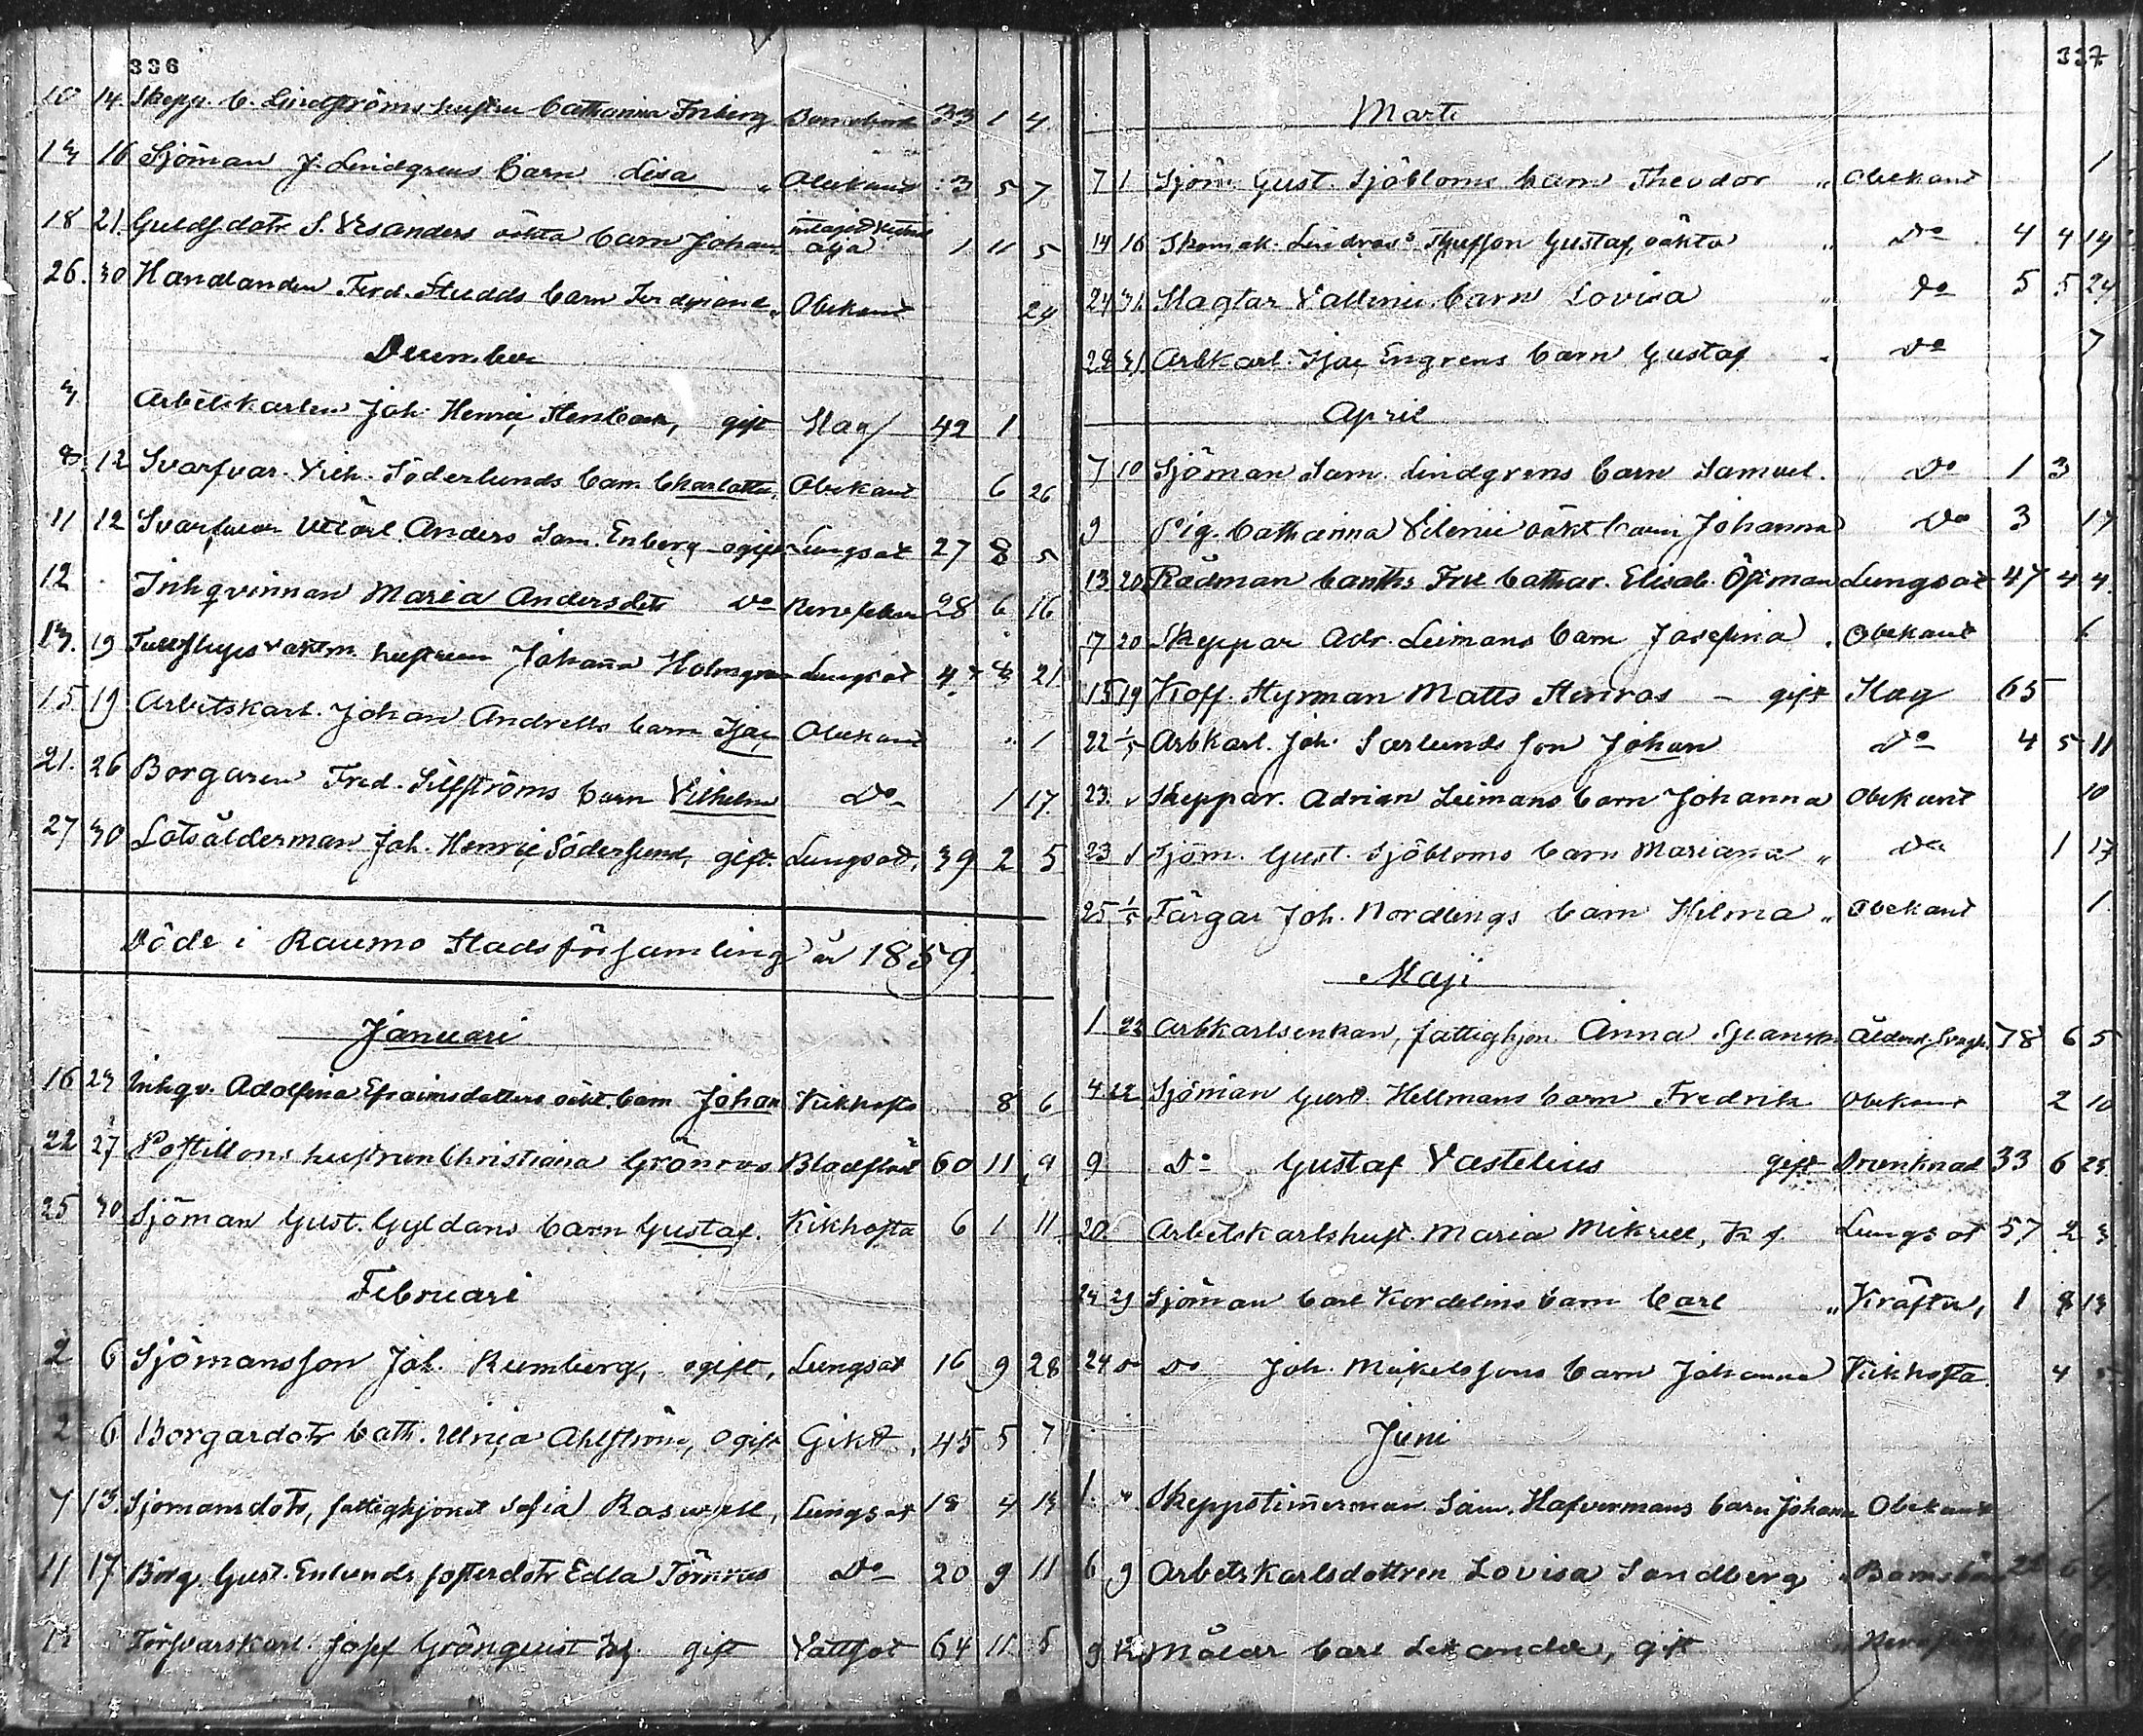 336
10 14 Skepp. C. Lindströms hustru Catharina Friberg Barnsbörd 33 1 4
13 16 Sjöman J. Lindgrens barn Lisa " Obekant 3 5 7
18 21 Guldsdotr S. Vesanders oäkta barn Johan, 1 11 5
26. 30 Handlanden Ferd. Studds barn Obekant 24
December
3 Arbetskarlen Joh. Henric Stenback, gift Slag 42 1
8 12 Svarfvar Vilh. Söderlunds barn Charlotta, Obekant 6 26
11 12 Svarfvar Anders Sam. Enberg ogift Lungsot 27 8 5
12 Inhqvinnan Maria Andersdotr Do 28 6 16
13. 19 hustrun Johanna Holmgren Lungsot 21
15 19 Arbetskarl. Johan Andrells barn Isac Obekant " 1
21. 26 Borgaren Fred. Silfströms barn Vilhelm Do 1 17
27 30 Lotsålderman Joh. Henric Söderlund, gift. Lungsot, 39 2 5
Döde i Raumo Stads församling år 1859
Januari
16 23 Inhqv. Adolfina Efraimsdotters oäkt. barn Johan Kikhosta 8 6
22 27 Postillons hustrun Christiana Grönroos Blodflöde 60 11 9
25 30 Sjöman Gust. Gyldans barn Gustaf. Kikhosta 6 1 11
Februari
2 6 Sjömansson Joh. Rumberg, ogift, Lungsot 16 9 28
2 6 Borgardotr Cath. Ulrica Ahlström, ogift Gikt, 45 5 7
7 13 Sjömansdotr, fattighjonet Sofia Raswell, Lungsot 18 4 13
11 17 Borg. Gust. Enlunds fosterdotr Edla Törnroos Do 20 9 11
12 Försvarskarl. Josef Grönquist gift Vattsot 64 11 5
337
Marti
7 1 Sjöm. Gust. Sjöbloms barn Theodor " Obekant 1
14 16 Skomak. Gustaf, oäkta " Do 4 4 14
24 31 Slagtar Vallenii barn Lovisa " Do 5 5 24
28 31 Arbkarl. Isac Engrens barn Gustaf " Do 7
April
7 10 Sjöman Sam. Lindgrens barn Samuel. Do 1 3
9 Pig. Catharina Vilenii oäkt barn Johanna Do 3 17
13 20 Rådman Canths Fru Cathar. Elisab. Öhman Lungsot 47 4 4
17 20 Skeppar Adr. Leimans barn Josefina " Obekant 6
15 19 Koff. Styrman Matts Stenroos – gift Slag 65
22 1/5 Arbkarl. Joh. Sarlunds son Johan Do 4 5 11
23. " Skeppar. Adrian Leimans barn Johanna Obekant 10
23 " Sjöm. Gust. Sjöbloms barn Mariana " Do 1 17
25 1/5 Färgar Joh. Nordlings barn Hilma " Obekant 1
Maji
1 22 Arbkarlsenkan, fattighjon. Anna Ålderd. Svagh. 78 6 5
4 22 Sjöman Gust. Hellmans barn Fredrik Obekant 2 10
9 Do Gustaf Vastelius gift Drunknad 33 6 25
20 Arbetskarlshust. Maria Mikrell, Lungsot 57 2 3
24 29 Sjöman Carl Kordelins barn Carl " Kräfta, 1 8 13
24 Do Do Joh. Mickelssons barn Johanna Kikhosta. 4
Juni
1. " Skeppstimmerman Sam. Hafvermans barn Johan Obekant 1
6 9 Arbetskarlsdottren Lovisa Sandberg
9 12 Målar Carl Lexander, gift